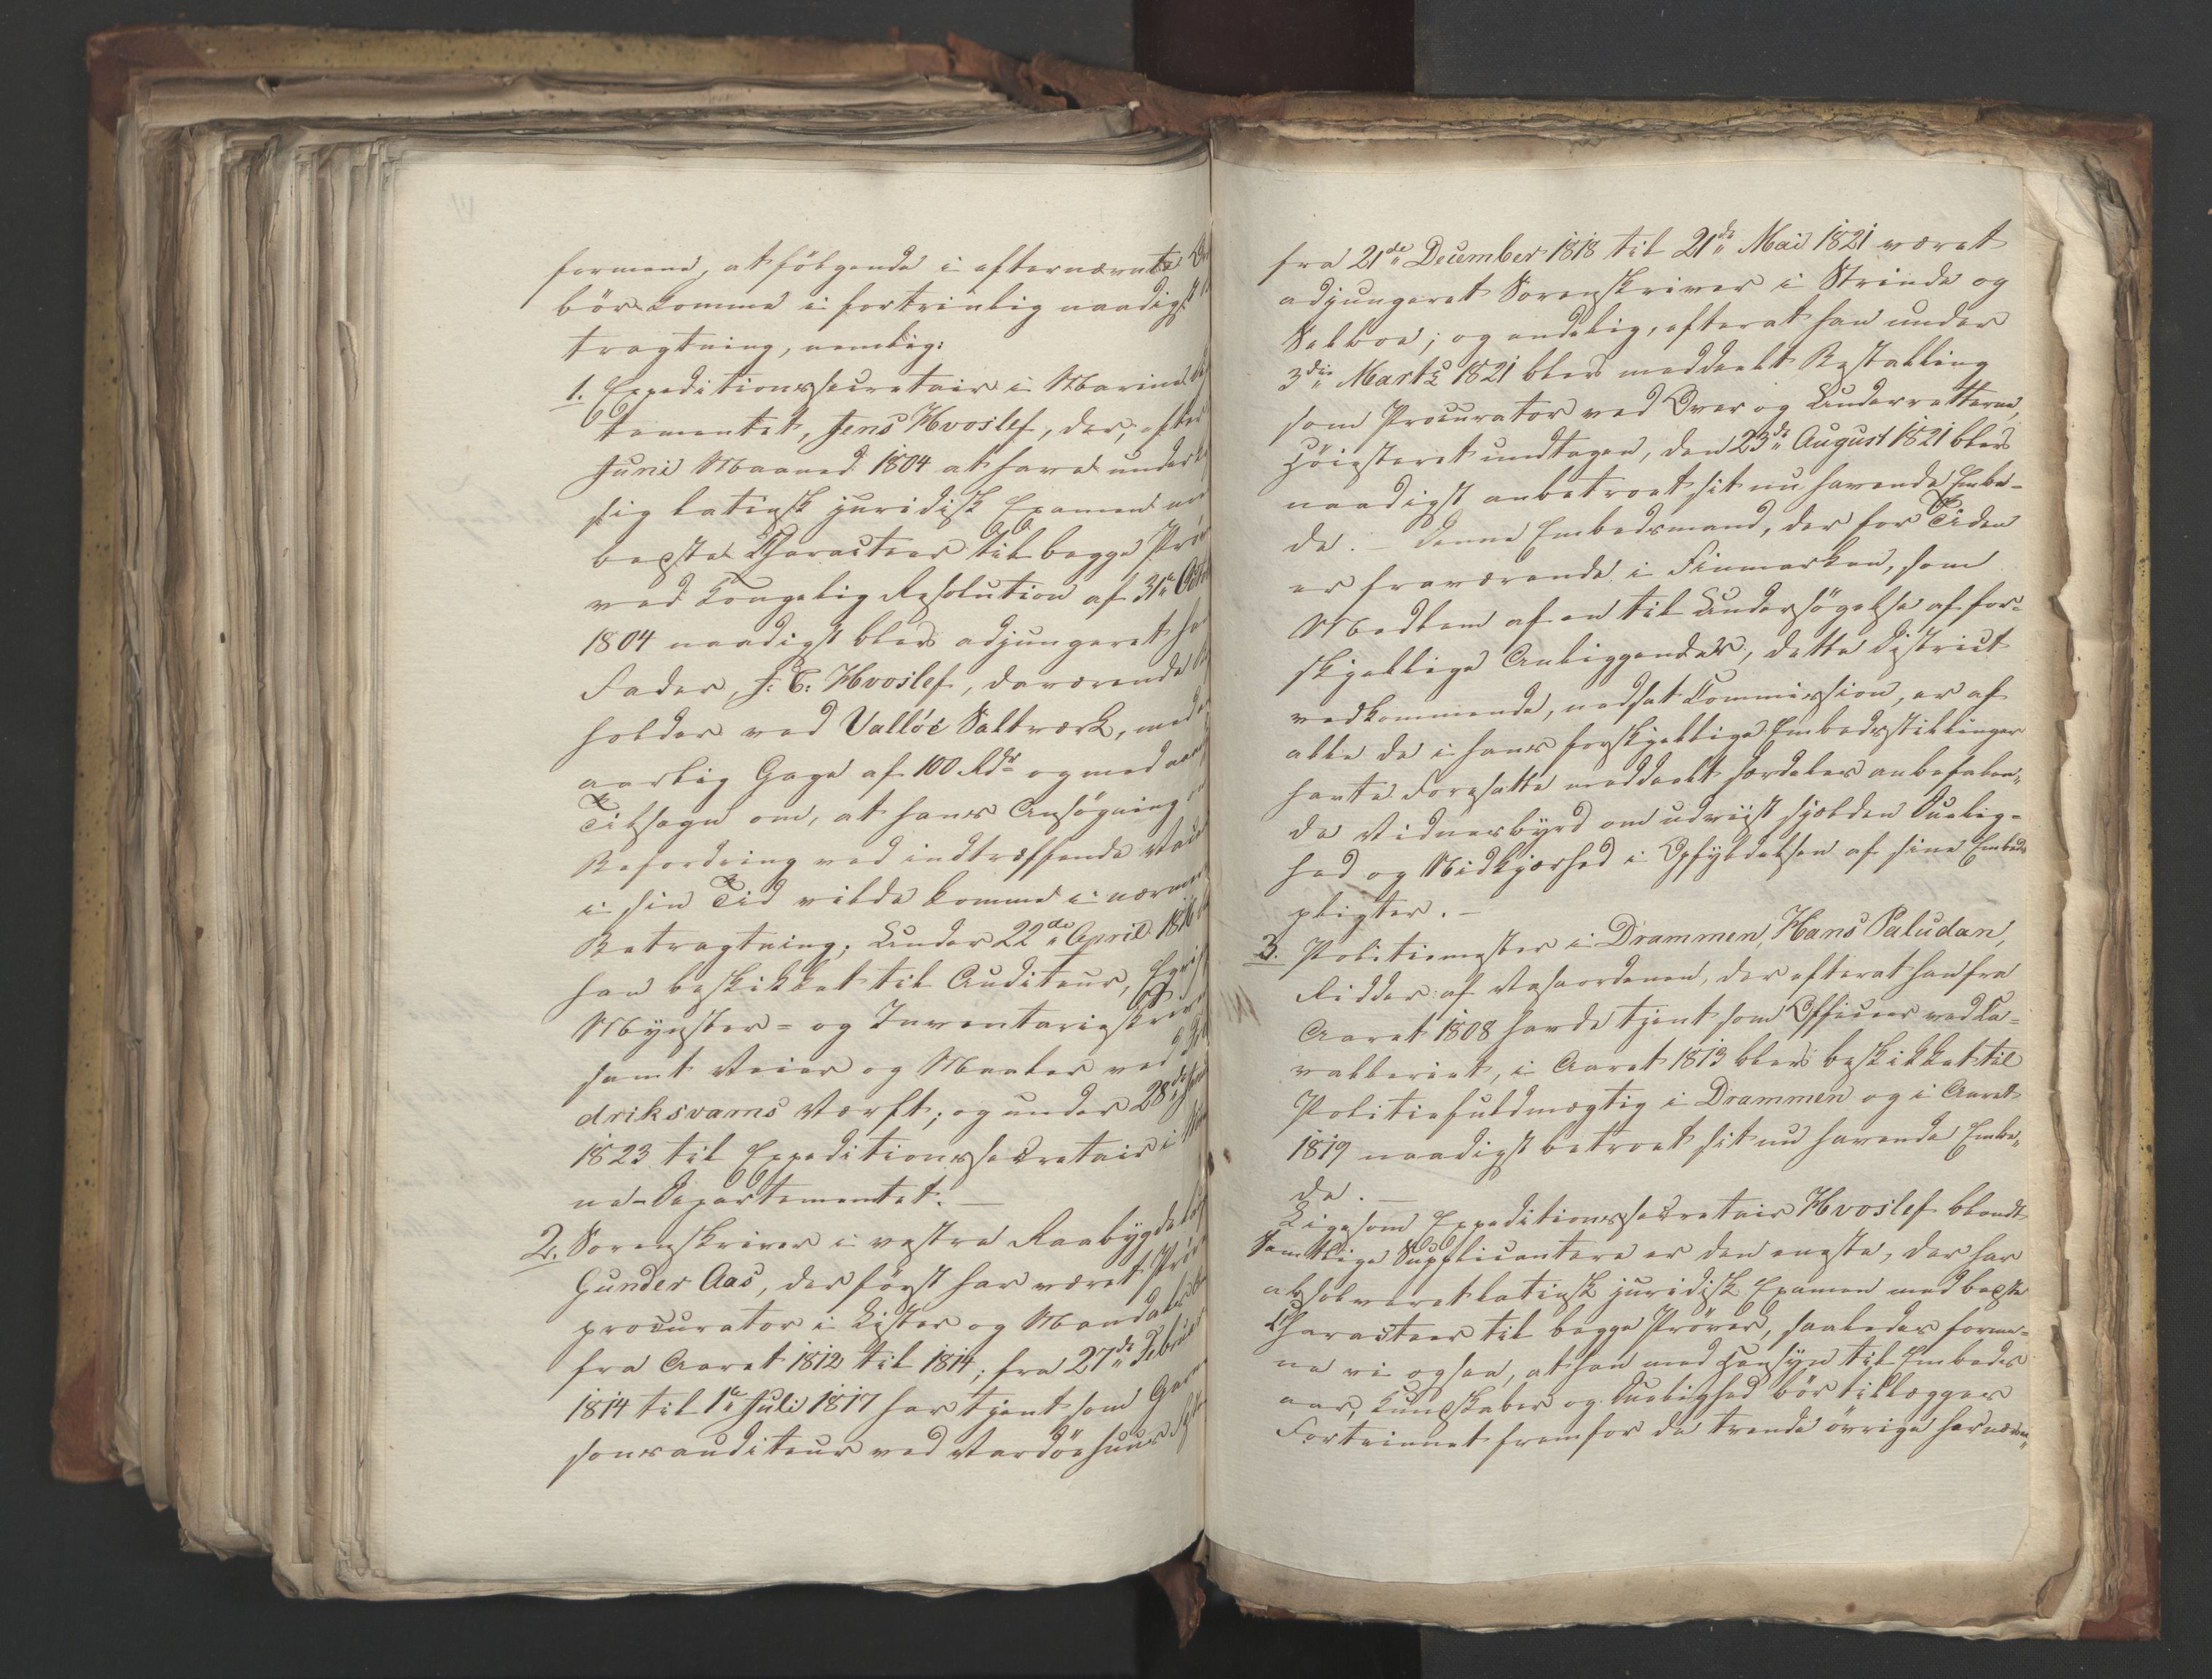 formene, at følgende i efternævnte
bör komme i fortrinlig naadigst
tragtning, nemlig:
1. Expeditionssecretair i Marine
tementet, Jens Hvoslef, der, efter
Juni Maaned 1804 at have under
sig latinsk juridisk Examen
bedste Characteer til begge Prö
ved Kongelig Resolution af 31te Octob
1804 naadigst blev adjungeret ha
Fader, J. C. Hvoslef, daværende
holder ved Vallöe Saltværk, med
aarlig Gage af 100 Rdr og med
Tilsagn om, at hans Ansögning
Befordring ved indtræffende Va
i sin Tid vilde komme i nærme
Betragtning; Under 22de April 1816
han beskikket til Auditeur,
Mynster- og Inventarieskriver
samt Veier og Maaler ved
driksværns Værft; og under 28de
1823 til Expeditionssecretair i
ne-Departementet. —
2. Sorenskriver i vestre Raabygdela
Gunder Aas, der først har været Prö
procurator i Lister og Mandals
fra Aaret 1812 til 1814; fra 27de Februar
1814 til 1te Juli 1817 har tjent som Garni
sonsauditeur ved Vardöehuus
fra 21de December 1818 til 21de Mai 1821 været
adjungeret Sorenskriver i Strinde og
Selboe; og endelig, efterat han under
3die Marts 1821 blev meddeelt Bestalling
som Procurator ved Over og Underretterne,
Höiesteret undtagen, den 23de August 1821 blev
naadigst anbetroet sit nu havende Embe-
de. — Denne Embedsmand, der for Tiden
er fraværende i Finmarken, som
Medlem af en til Undersögelse af for-
skjellige Anliggender, dette District
vedkommende, nedsat Commission, er af
alle de i hans forskjellige Embedsstillinger
havte Foresatte meddeelt særdeles anbefalen-
de Vidnesbyrd om udviist sjelden Duelig-
hed og Nidkjærhed i Opfyldelsen af sine Embeds
pligter. —
3. Politiemester i Drammen, Hans Paludan,
Ridder af Vasaordenen, der efterat han fra
Aaret 1808 havde tjent som Officeer ved Ca-
valleriet, i Aaret 1813 blev beskikket til
Politiefuldmægtig i Drammen og i Aaret
1819 naadigst betroet sit nu havende Embe-
de. —
Ligesom Expeditionssecretair Hvoslef blandt
samtlige Supplicantere er den eneste, der har
absolveret latinsk juridisk Examen med bedste
Characteer til begge Pröver, saaledes forme-
ne vi ogsaa, at han med Hensyn til Embeds
aar, Kundskaber og Duelighed bör tillægges
Fortrinnet fremfor de trende övrige her næv-